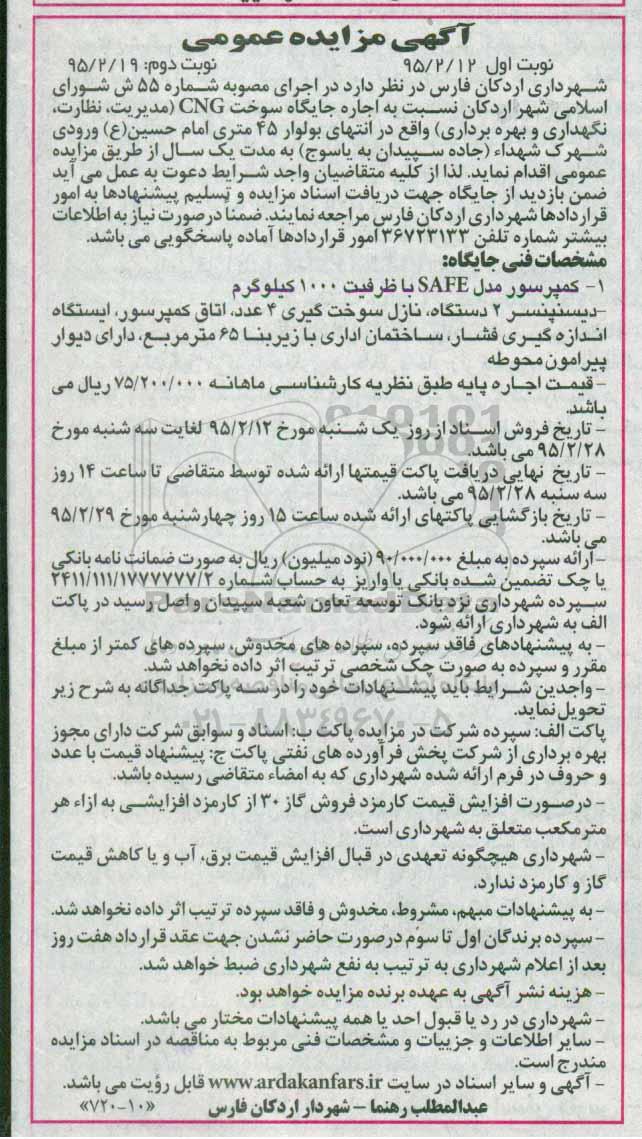 آگهی مزایده عمومی
نوبت اول ۹۵/۲/۱۲ نوبت دوم: ۹۵/۲/۱۹
شهرداری اردکان فارس در نظر دارد در اجرای مصوبه شماره ۵۵ ش شورای
اسلامی شهر اردکان نسبت به اجاره جایگاه سوخت CNG (مدیریت، نظارت،
نگهداری و بهره برداری) واقع در انتهای بولوار ۴۵ متری امام حسین(ع) ورودی
شهرک شهداء (جاده سپیدان به یاسوج) به مدت یک سال از طریق مزایده
عمومی اقدام نماید. لذا از کلیه متقاضیان واجد شرایط دعوت به عمل می آید
ضمن بازدید از جایگاه جهت دریافت اسناد مزایده و تسلیم پیشنهادها به امور
قراردادها شهرداری اردکان فارس مراجعه نمایند. ضمناً درصورت نیاز به اطلاعات
بیشتر شماره تلفن ۳۶۷۲۳۱۳۳ امور قراردادها آماده پاسخگویی می باشد.
مشخصات فنی جایگاه:
۱- کمپرسور مدل SAFE با ظرفیت ۱۰۰۰ کیلوگرم
-دیسنپنسر ۲ دستگاه، نازل سوخت گیری ۴ عدد، اتاق کمپرسور، ایستگاه
اندازه گیری فشار، ساختمان اداری با زیربنا ۶۵ مترمربع، دارای دیوار
پیرامون محوطه
- قیمت اجاره پایه طبق نظریه کارشناسی ماهانه ۷۵/۲۰۰/۰۰۰ ریال می
باشد.
- تاریخ فروش اسناد از روز یک شنبه مورخ ۹۵/۲/۱۲ لغایت سه شنبه مورخ
۹۵/۲/۲۸ می باشد.
- تاریخ نهایی دریافت پاکت قیمتها ارائه شده توسط متقاضی تا ساعت ۱۴ روز
سه سنبه ۹۵/۲/۲۸ می باشد.
- تاریخ بازگشایی پاکتهای ارائه شده ساعت ۱۵ روز چهارشنبه مورخ ۹۵/۲/۲۹
می باشد.
- ارائه سپرده به مبلغ ۹۰/۰۰۰/۰۰۰ (نود میلیون) ریال به صورت ضمانت نامه بانکی
یا چک تضمین شده بانکی یا واریز به حساب شماره ۲۴۱۱/۱۱۱/۱۷۷۷۷۷۷/۲
سپرده شهرداری نزد بانک توسعه تعاون شعبه سپیدان و اصل رسید در پاکت
الف به شهرداری ارائه شود.
- به پیشنهادهای فاقد سپرده، سپرده های مخدوش، سپرده های کمتر از مبلغ
مقرر و سپرده به صورت چک شخصی ترتیب اثر داده نخواهد شد.
- واجدین شرایط باید پیشنهادات خود را در سه پاکت جداگانه به شرح زیر
تحویل نماید.
پاکت الف: سپرده شرکت در مزایده پاکت ب: اسناد و سوابق شرکت دارای مجوز
بهره برداری از شرکت پخش فرآورده های نفتی پاکت ج: پیشنهاد قیمت با عدد
و حروف در فرم ارائه شده شهرداری که به امضاء متقاضی رسیده باشد.
- درصورت افزایش قیمت کارمزد فروش گاز ۳۰ از کارمزد افزایشی به ازاء هر
مترمکعب متعلق به شهرداری است.
- شهرداری هیچگونه تعهدی در قبال افزایش قیمت برق، آب و یا کاهش قیمت
گاز و کارمزد ندارد.
- به پیشنهادات مبهم، مشروط، مخدوش و فاقد سپرده ترتیب اثر داده نخواهد شد.
- سپرده برندگان اول تا سوم درصورت حاضر نشدن جهت عقد قرارداد هفت روز
بعد از اعلام شهرداری به ترتیب به نفع شهرداری ضبط خواهد شد.
- هزینه نشر آگهی به عهده برنده مزایده خواهد بود.
- شهرداری در رد یا قبول احد یا همه پیشنهادات مختار می باشد.
- سایر اطلاعات و جزییات و مشخصات فنی مربوط به مناقصه در اسناد مزایده
مندرج است.
- آگهی و سایر اسناد در سایت www.ardakanfars.ir قابل رؤیت می باشد.
عبدالمطلب رهنما - شهردار اردکان فارس «۷۲۰-۱۰»